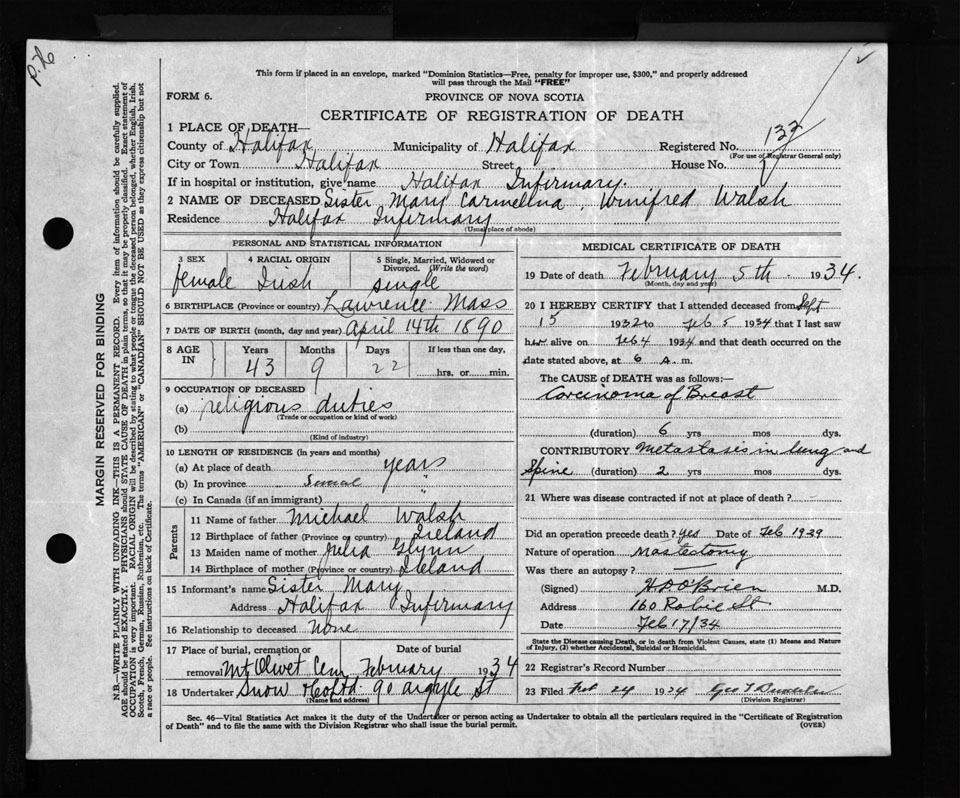 P. 76
This form if placed in an envelope, marked "Dominion Statistics—Free, penalty for improper use, $300," and properly addressed
will pass through the Mail "FREE"
FORM 6.
PROVINCE OF NOVA SCOTIA
CERTIFICATE OF REGISTRATION OF DEATH
1 PLACE OF DEATH—
County of Halifax Municipality of Halifax Registered No. 132
(For use of Registrar General only)
City or Town Halifax Street House No.
If in hospital or institution, give name Halifax Infirmary.
2 NAME OF DECEASED Sister Mary Carmellna, Winifred Walsh
Residence Halifax Infirmary
(Usual place of abode)
PERSONAL AND STATISTICAL INFORMATION
3 SEX 4 RACIAL ORIGIN 5 Single, Married, Widowed or
Divorced. (Write the word)
female Irish single
6 BIRTHPLACE (Province or country) Lawrence Mass
7 DATE OF BIRTH (month, day and year) April 14th 1890
8 AGE IN Years Months Days If less than one day,
43 9 22 hrs. or min.
9 OCCUPATION OF DECEASED
(a) religious duties
(Trade or occupation or kind of work)
(b)
(Kind of industry)
10 LENGTH OF RESIDENCE (in years and months)
(a) At place of death years
(b) In province "
(c) In Canada (if an immigrant)
Parents
11 Name of father Michael Walsh
12 Birthplace of father (Province or country) Ireland
13 Maiden name of mother Julia Glynn
14 Birthplace of mother (Province or country) Ireland
15 Informant's name Sister Mary
Address Halifax Infirmary
16 Relationship to deceased None
17 Place of burial, cremation or Date of burial
removal Mt Olivet Cem February 1934
18 Undertaker Snow & Co Ltd. 90 Argyle St
(Name and address)
MEDICAL CERTIFICATE OF DEATH
19 Date of death February 5th 1934.
(Month, day and year)
20 I HEREBY CERTIFY that I attended deceased from Sept
15 1932 to Feb 5 1934 that I last saw
her alive on Feb 4 1934 and that death occurred on the
date stated above, at 6 A. m.
The CAUSE of DEATH was as follows:—
Carcinoma of Breast
(duration) 6 yrs mos dys.
CONTRIBUTORY Metastases in lung and
Spine (duration) 2 yrs mos dys.
21 Where was disease contracted if not at place of death?
Did an operation precede death? yes Date of Feb 1929
Nature of operation Mastectomy
Was there an autopsy? —
(Signed) H D O'Brien M.D.
Address 160 Robie St
Date Feb 17/34
State the Disease causing Death, or in death from Violent Causes, state (1) Means and Nature
of Injury, (2) whether Accidental, Suicidal or Homicidal.
22 Registrar's Record Number
23 Filed Feb 24 1934 Geo
(Division Registrar)
Sec. 46—Vital Statistics Act makes it the duty of the Undertaker or person acting as Undertaker to obtain all the particulars required in the "Certificate of Registration
of Death" and to file the same with the Division Registrar who shall issue the burial permit.
(OVER)
MARGIN RESERVED FOR BINDING
N.B.—WRITE PLAINLY WITH UNFADING INK—THIS IS A PERMANENT RECORD. Every item of information should be carefully supplied.
AGE should be stated EXACTLY. PHYSICIANS should STATE CAUSE OF DEATH in plain terms, so that it may be properly classified. Exact statement of
OCCUPATION is very important. RACIAL ORIGIN will be described by stating to what people or tongue the deceased person belonged, whether English, Irish,
Scotch, French, German, Russian, Ruthenian, etc. The terms "AMERICAN" or "CANADIAN" SHOULD NOT BE USED as they express citizenship but not
a race or people. See instructions on back of Certificate.